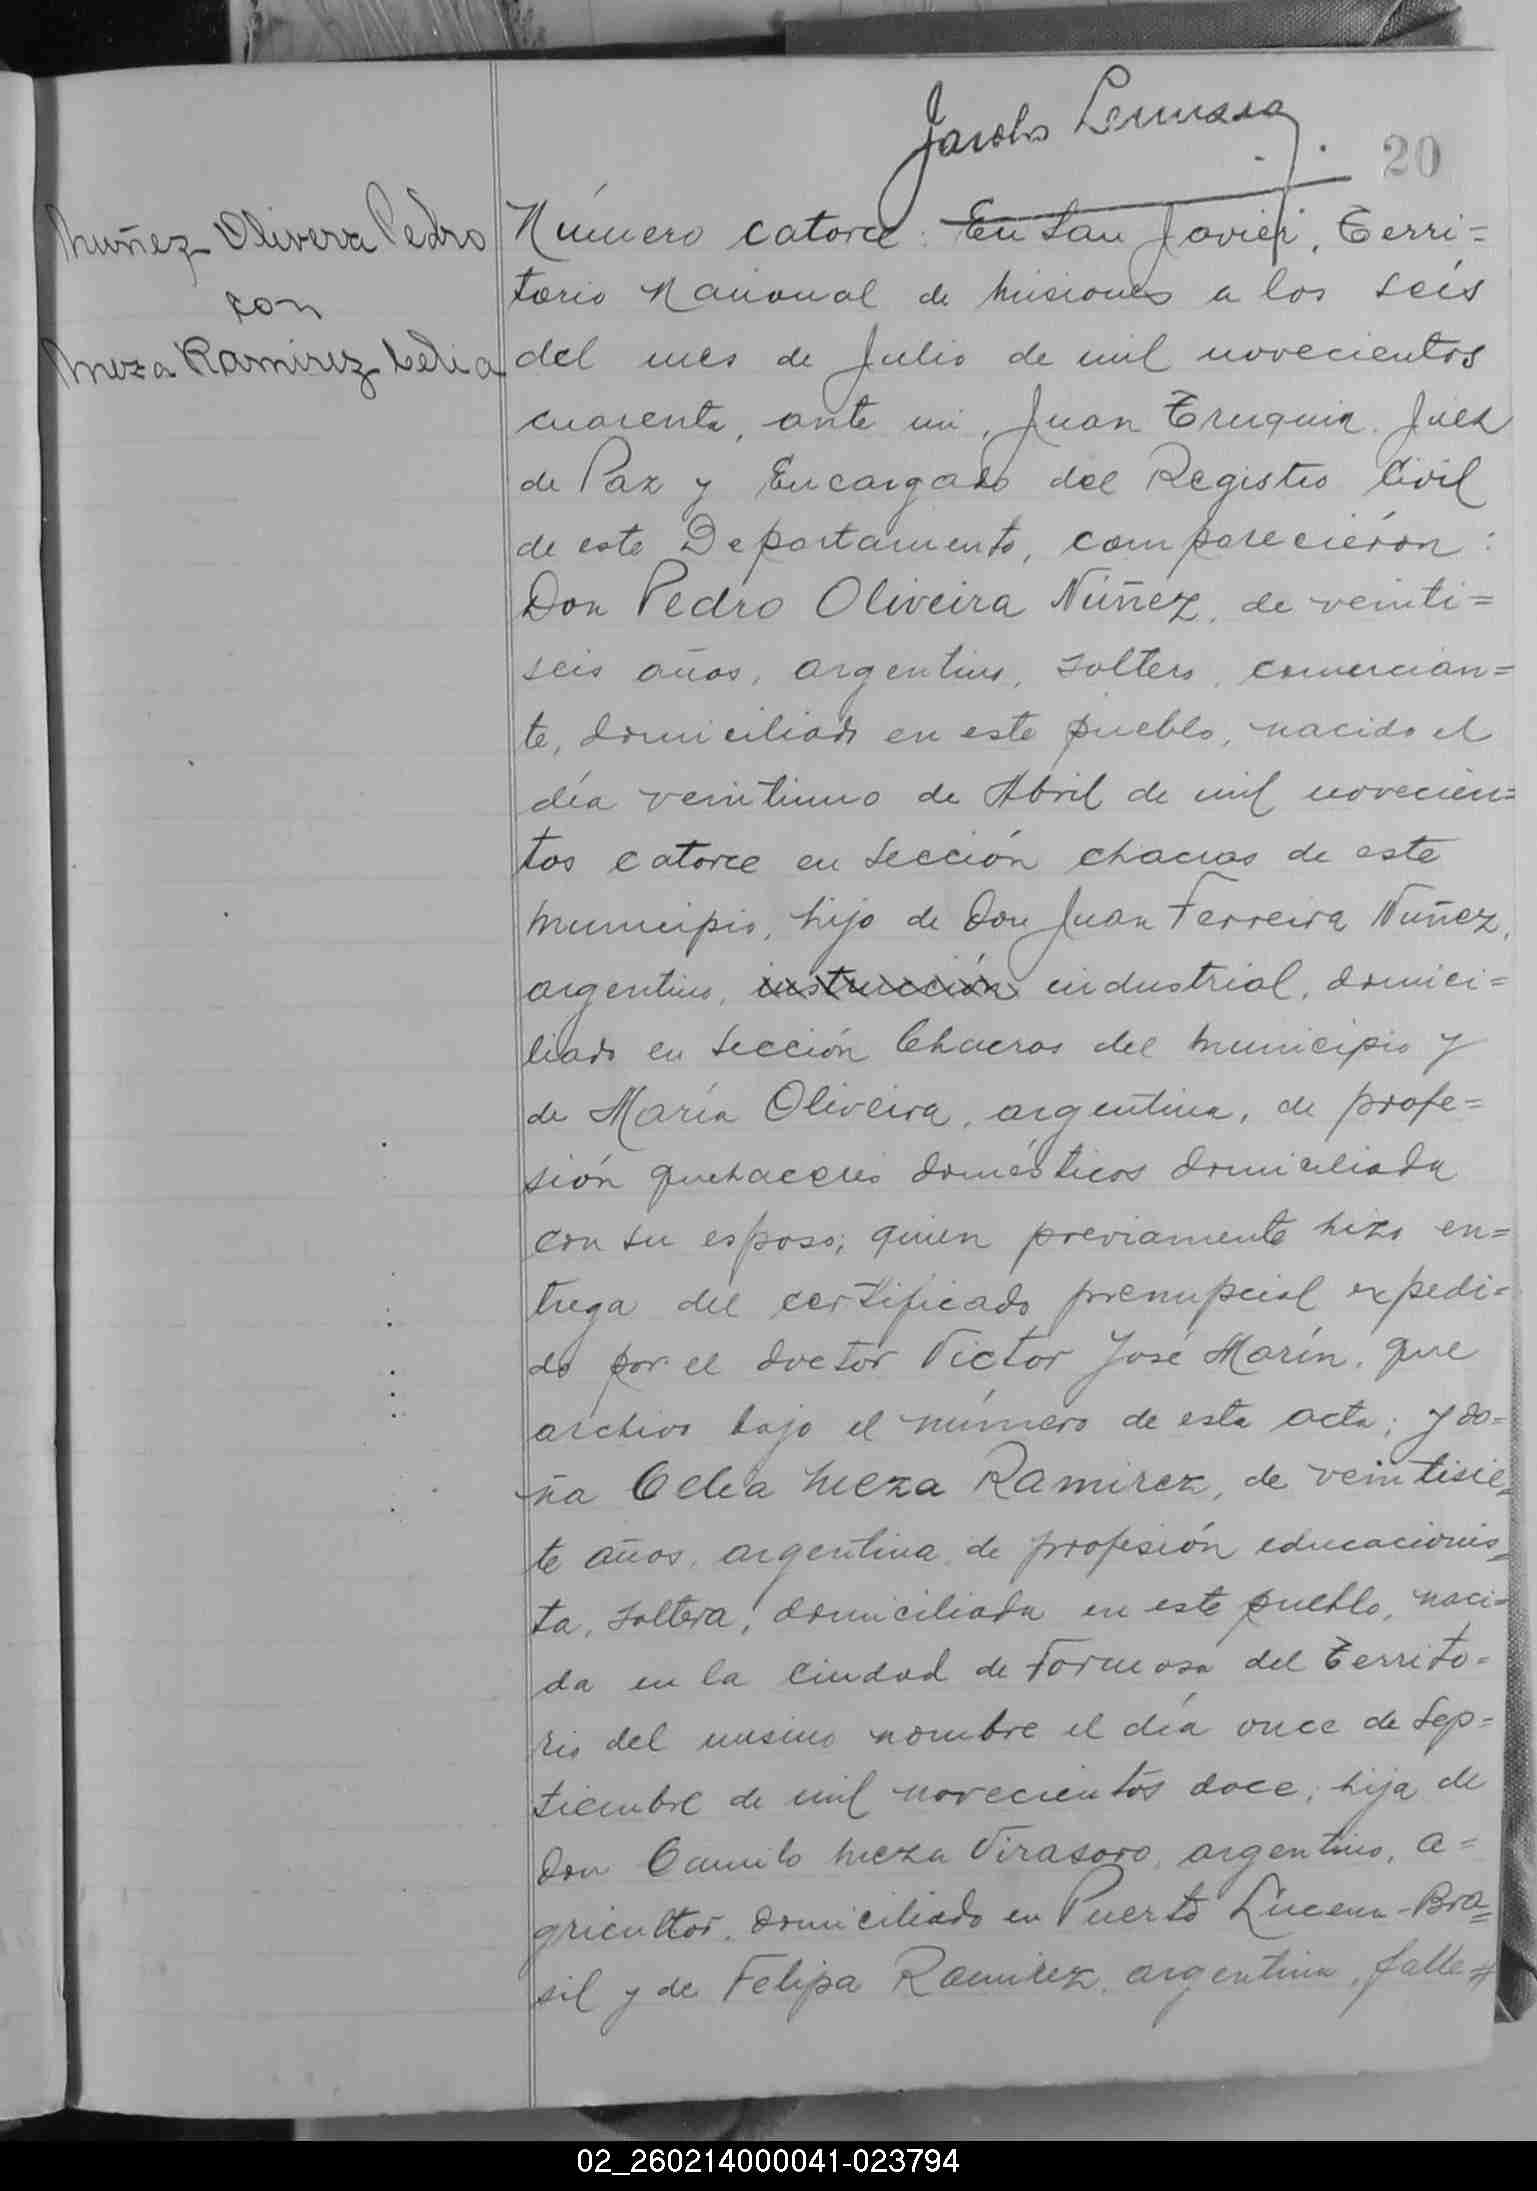 20
Nuñez Olivera Pedro
con
Meza Ramirez Celia
Número catorce: En San Javier, Terri=
torio Nacional de Misiones a los seis
del mes de Julio de mil novecientos
cuarenta, ante mi, Juan Truquin Juez
de Paz y Encargado del Registro Civil
de este Departamento, comparecierón:
Don Pedro Oliveira Núñez, de veinti=
seis años, argentino, soltero, comercian=
te, domiciliado en este pueblo, nacido el
día veintiuno de Abril de mil novecien=
tos catorce en Sección chacras de este
municipio, hijo de Don Juan Ferreira Nuñez,
argentino, instrucción industrial, domici=
liado en Sección Chacras del municipio y
de María Oliveira, argentina, de profe=
sión quehaceres domésticos domiciliada
con su esposo; quien previamente hizo en=
trega del certificado prenupcial expedi=
do por el doctor Victor José Marín, que
archivo bajo el número de esta acta; y do=
ña Celia Meza Ramirez, de veintisie=
te años, argentina, de profesión educacionis=
ta, soltera, domiciliada en este pueblo, naci=
da en la ciudad de Formosa del Territo=
rio del mismo nombre el día once de Sep=
tiembre de mil novecientos doce; hija de
Don Camilo Meza Virasoro, argentino, a=
gricultor, domiciliado en Puerto Lucena-Bra=
sil y de Felipa Ramirez, argentina, falle=
02_260214000041-023794